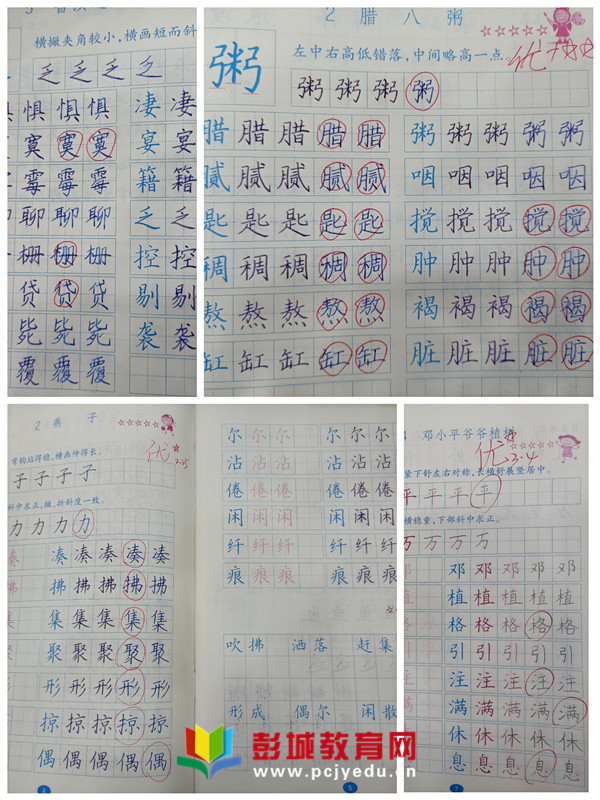 横撇夹角较小,横画短而斜
乏 乏 乏 乏
惧 惧 惧 凄 凄
寞 寞 寞 宴 宴
霉 霉 霉 籍 籍
聊 聊 乏 乏
栅 栅 控 控
贷 贷 贷 剔 剔
毙 毙 毙 袭 袭
覆 覆 覆
2 腊 八 粥
粥
左中右高低错落,中间略高一点。
优
粥 粥 粥 粥
腊 腊 腊 腊 腊 粥 粥 粥 粥 粥
腻 腻 腻 腻 腻 咽 咽 咽 咽 咽
匙 匙 匙 匙 匙 搅 搅 搅 搅 搅
稠 稠 稠 稠 稠 肿 肿 肿 肿 肿
熬 熬 熬 熬 熬 褐 褐 褐 褐 褐
缸 缸 缸 缸 缸 脏 脏 脏 脏 脏
2 燕 子
弯钩站得稳,横画伸得长。
优
子 子 子 子
斜中求正,撇、折斜度一致。
力 力 力 力
凑 凑 凑 凑 凑 凑
拂 拂 拂 拂 拂 拂
集 集 集 集 集 集
聚 聚 聚 聚 聚 聚
形 形 形 形 形 形
掠 掠 掠 掠 掠 掠
偶 偶 偶 偶 偶 偶
尔 尔 尔 尔 尔 尔
沾 沾 沾 沾 沾 沾
倦 倦 倦 倦 倦 倦
闲 闲 闲 闲 闲 闲
纤 纤 纤 纤 纤 纤
痕 痕 痕 痕 痕 痕
吹拂 洒落 赶集
形成 偶尔 闲散
5
邓小平爷爷植树
优 3.4
紧下舒左右对称,长横舒展竖居中。
平 平 平 平
横稳重,下部斜中求正。
万 万 万 万
邓 邓 邓 邓 邓
植 植 植 植 植
格 格 格 格 格
引 引 引 引 引
注 注 注 注 注
满 满 满 满 满
休 休 休 休 休
息 息 息 息 息
7
彭城教育网
www.pcjyedu.cn